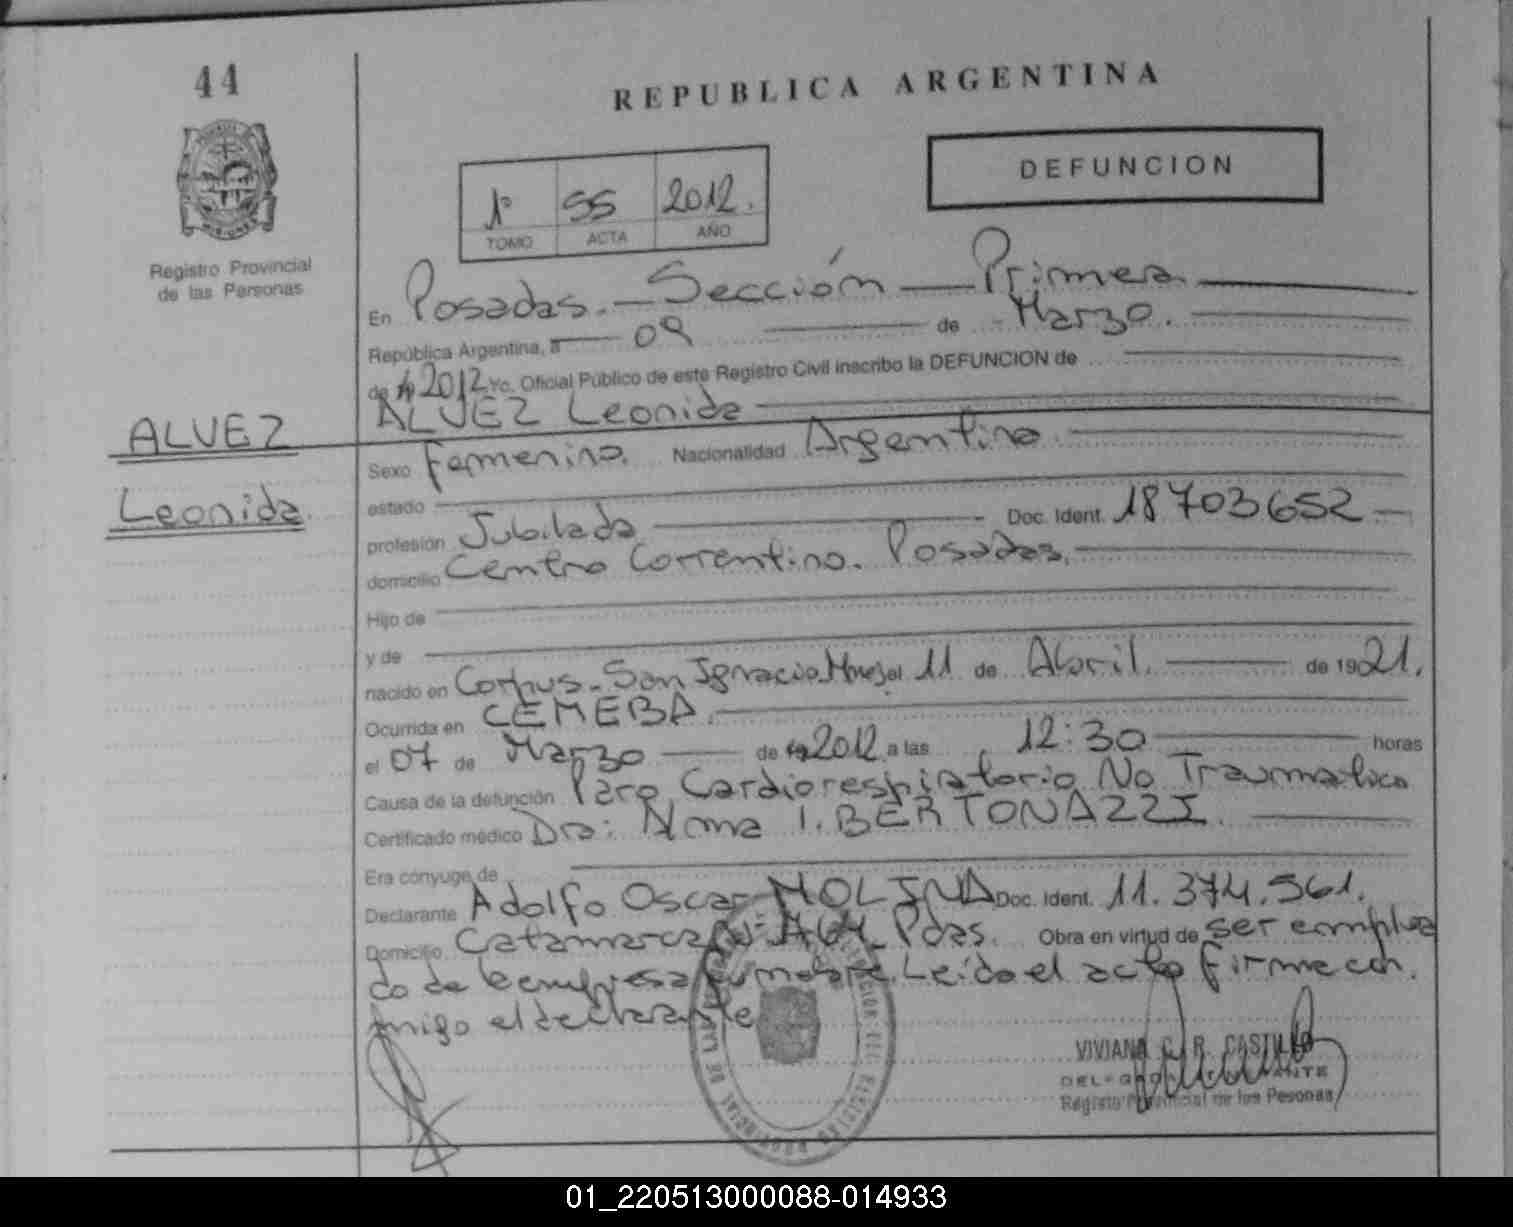 44
REPUBLICA ARGENTINA
DEFUNCION
1º 55 2012.
TOMO ACTA AÑO
Registro Provincial
de las Personas
En Posadas. Sección Primera
República Argentina, a 09 de Marzo.
de 2012 Yo. Oficial Público de este Registro Civil inscribo la DEFUNCION de
ALVEZ Leonida
ALVEZ
Leonida
Sexo Femenino. Nacionalidad Argentina
estado
profesión Jubilada Doc. Ident. 18703652
domicilio Centro Correntino. Posadas.
Hijo de
y de
nacido en Corpus. San Ignacio. Mnes el 11 de Abril. de 1921.
Ocurrida en CEMEBA.
el 07 de Marzo de 2012 a las 12:30 horas
Causa de la defunción Paro Cardiorespiratorio No Traumatico
Certificado médico Dra: Alma I. BERTONAZZI.
Era cónyuge de
Declarante Adolfo Oscar MOLINA Doc. Ident. 11.374.561.
Domicilio Catamarca Pdas. Obra en virtud de ser emplea
do de la empresa funebre. Leido el acta firma con
migo el declarante
VIVIANA C. R. CASTILLO
Registro Provincial de las Personas
01_220513000088-014933